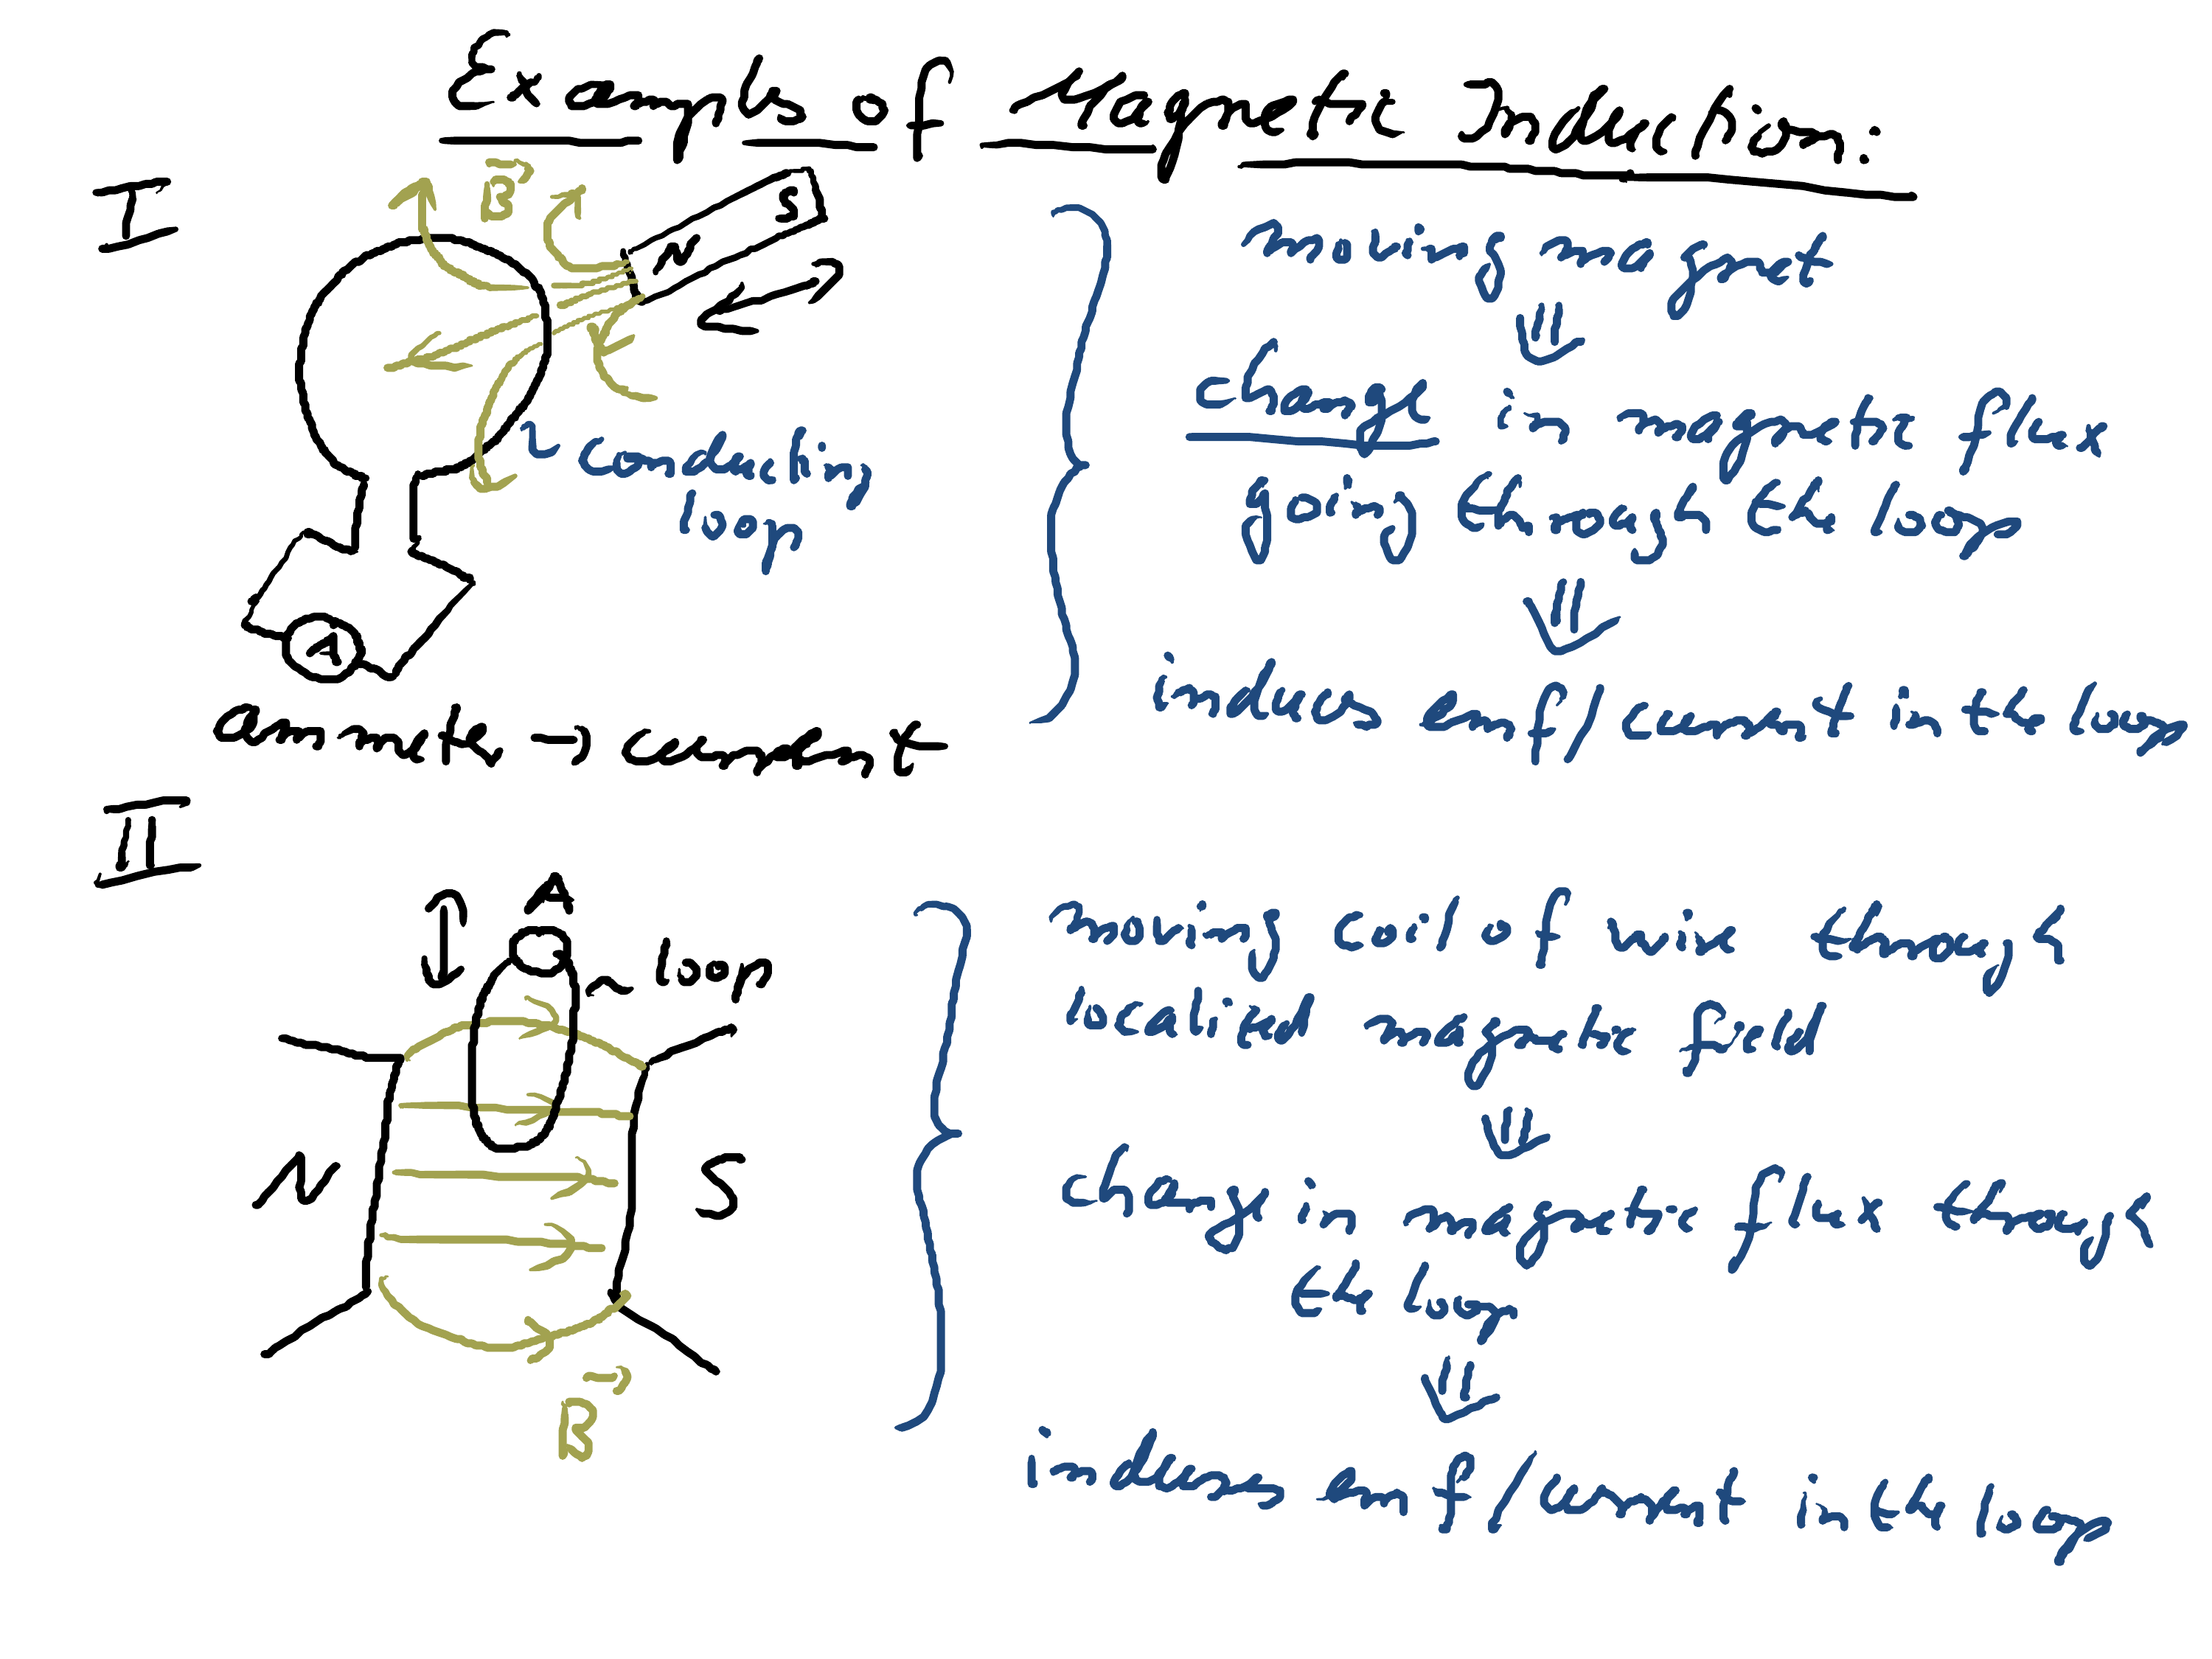 Examples of Magnetic Induction:
I
B
S
N
moving magnet
change in magnetic flux
going through the loop
conducting
loop
A
induces emf/current in the loop
II
A
loop
moving coil of wire through
localized magnetic field
N
S
change in magnetic flux through
the loop
B
induces emf/current in the loop